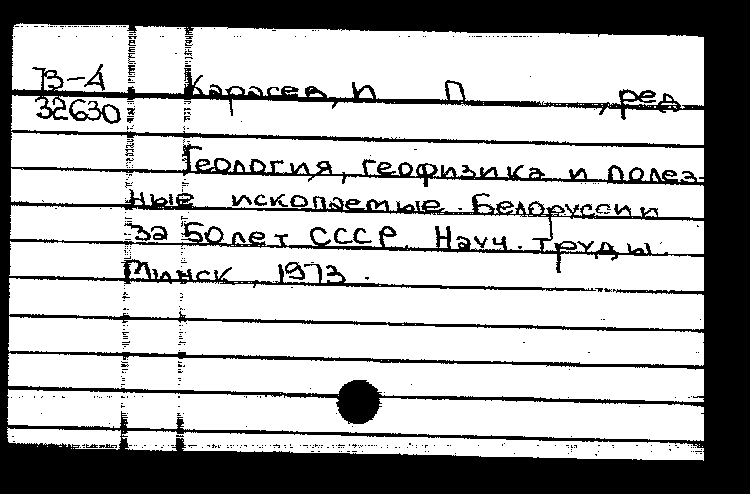 73-4
Карасев, И П , ред
32630
Геология, геофизика и полез-
ные ископаемые Белоруссии
за 50 лет СССР. Науч. труды.
Минск, 1973.